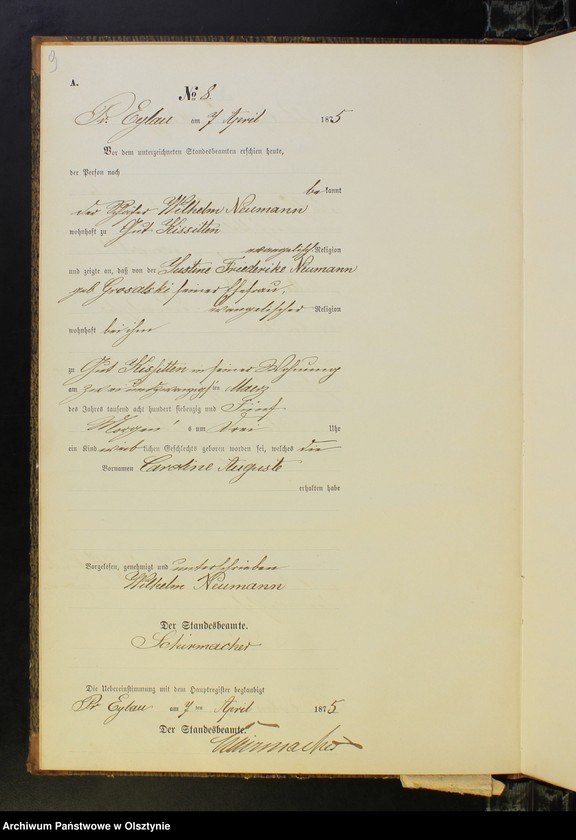 9
A.
No 8.
Pr. Eylau am 7 April 1875
Vor dem unterzeichneten Standesbeamten erschien heute,
der Person nach
bekannt
der Schäfer Wilhelm Neumann
wohnhaft zu Gut Kissitten
evangelisch Religion
und zeigte an, daß von der Justine Friederike Neumann
geb. Grosalski seiner Ehefrau,
evangelischer Religion
wohnhaft bei ihm
zu Gut Kissitten in seiner Wohnung
am zwei und zwanzigsten Maerz
des Jahres tausend acht hundert siebenzig und Fünf
Morgens um Drei Uhr
ein Kind weiblichen Geschlechts geboren worden sei, welches die
Vornamen Caroline Auguste
erhalten habe
Vorgelesen, genehmigt und unterschrieben
Wilhelm Neumann
Der Standesbeamte.
Schirmacher
Die Uebereinstimmung mit dem Hauptregister beglaubigt
Pr Eylau am 7 ten April 1875
Der Standesbeamte.
Schirmacher
Archiwum Państwowe w Olsztynie